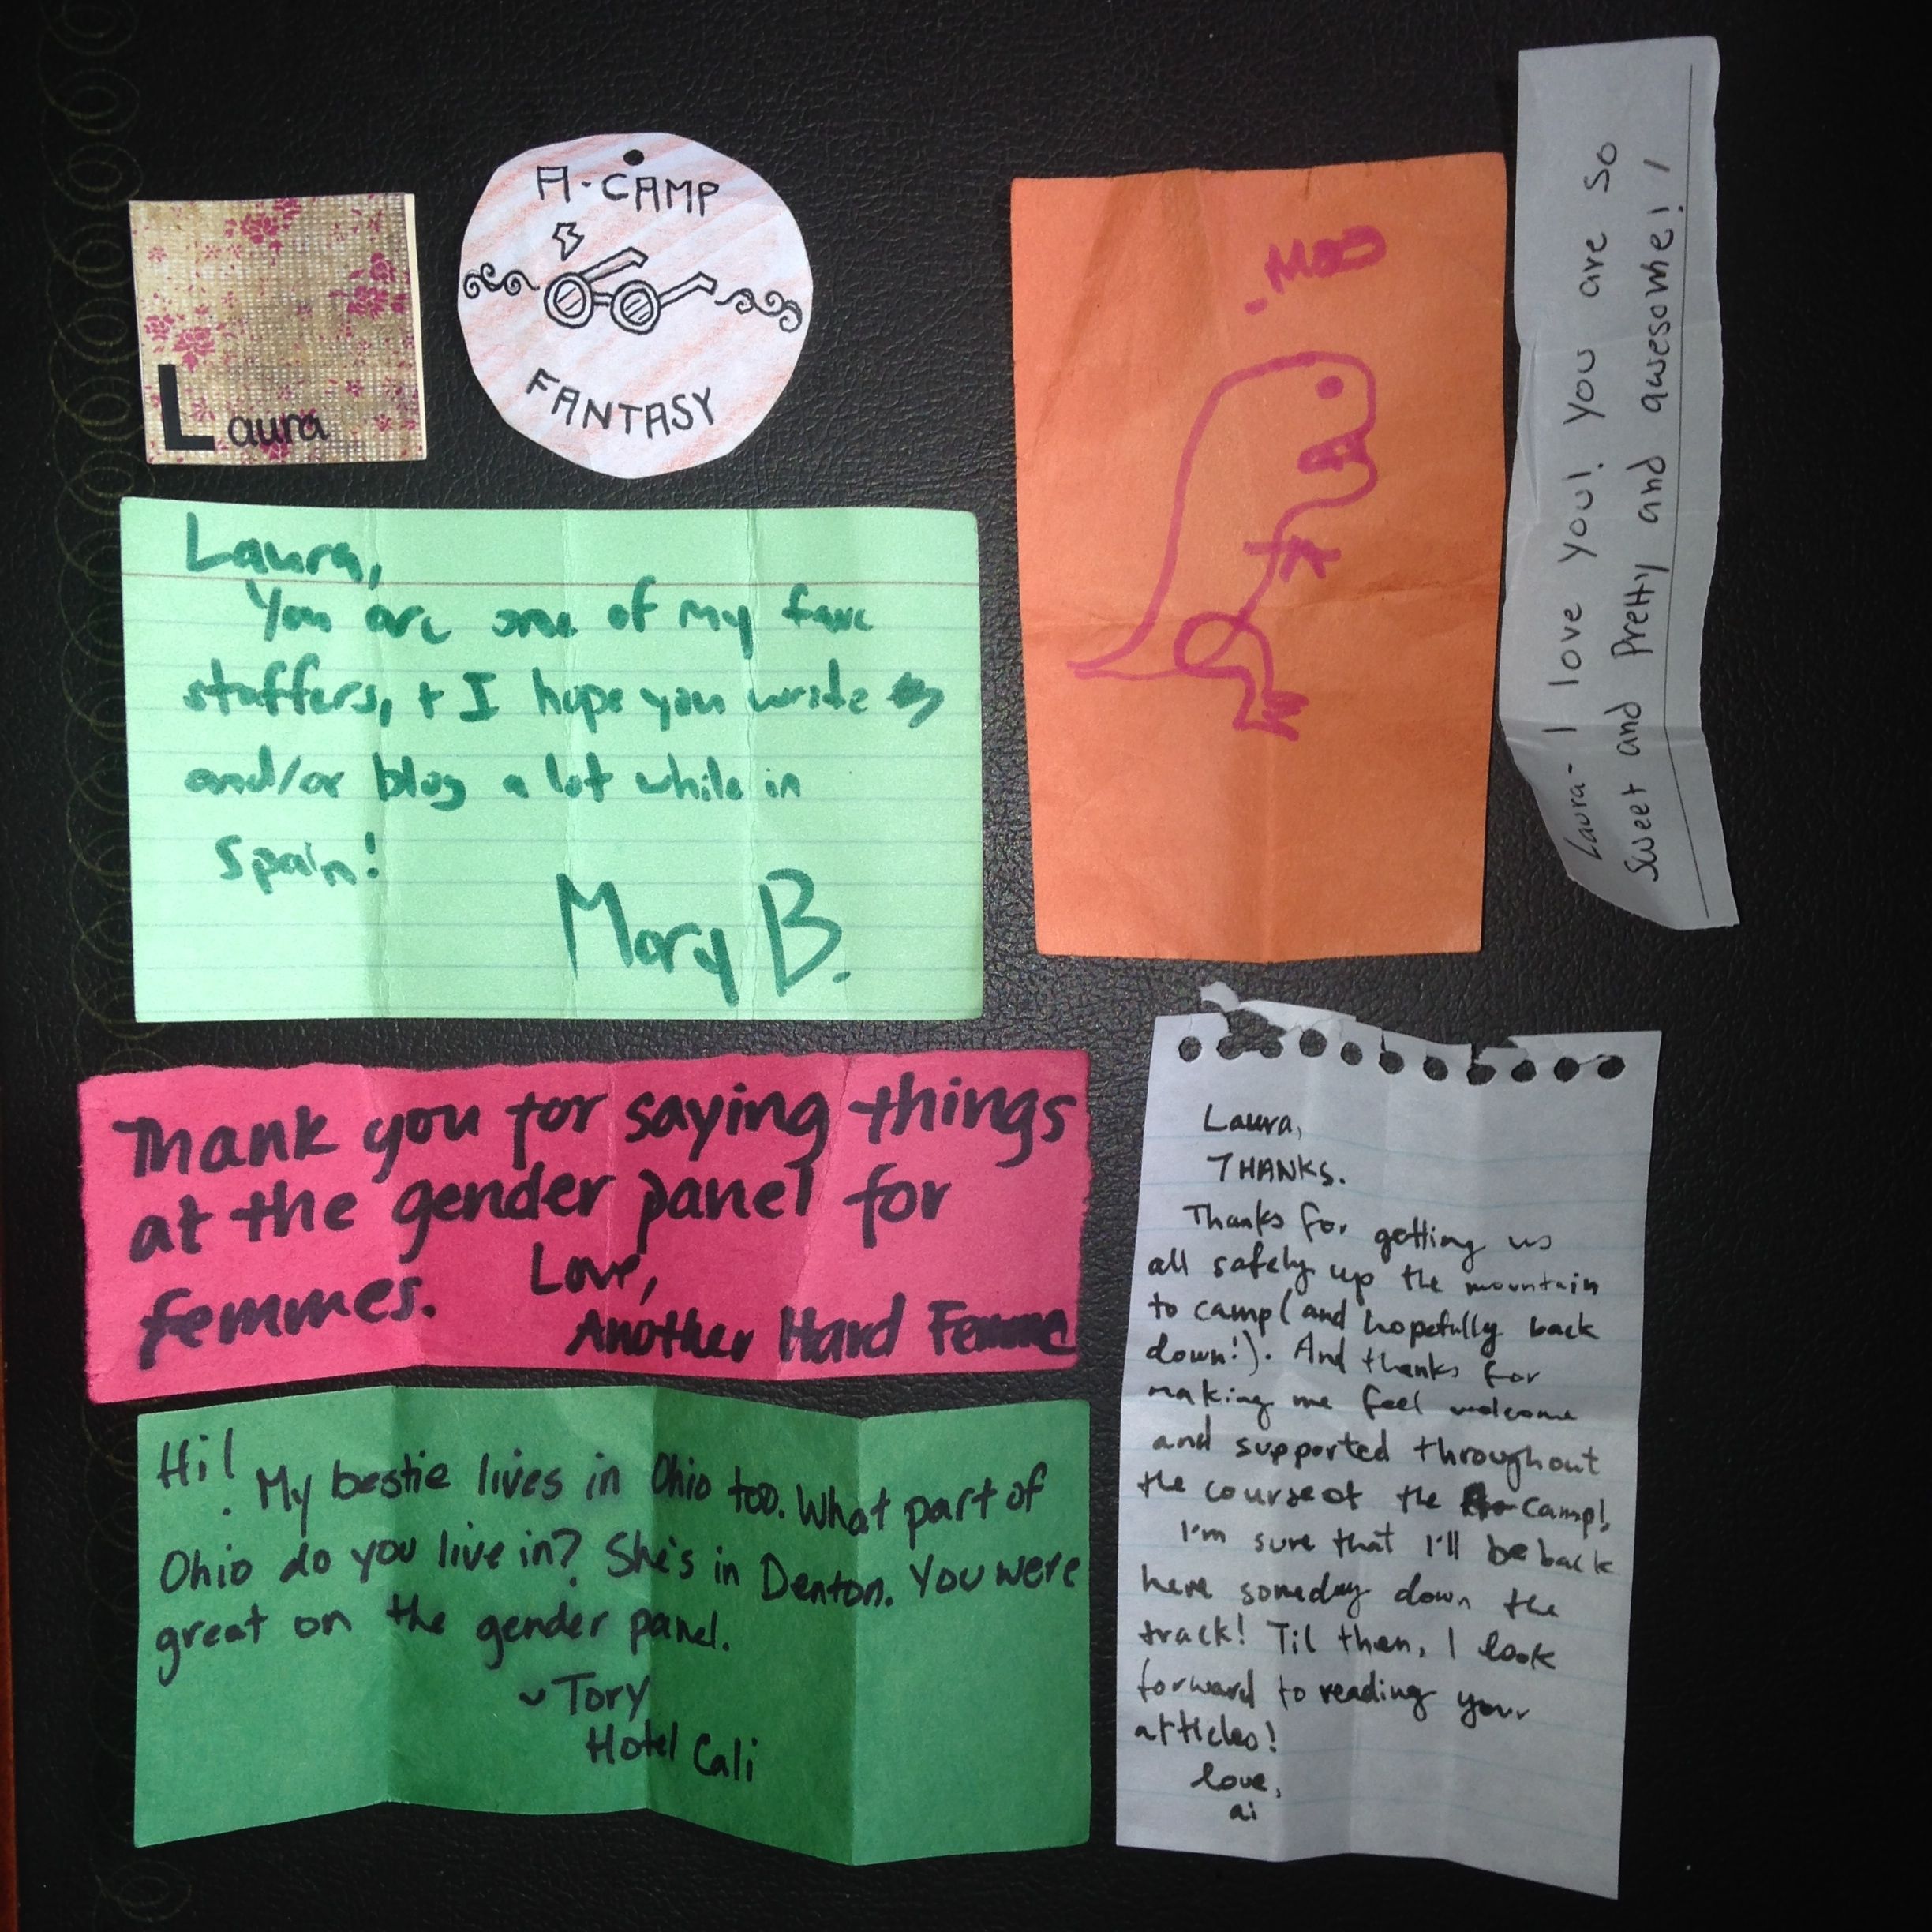 Laura
A-CAMP
FANTASY
Laura,
You are one of my fave
staffers, + I hope you write
and/or blog a lot while in
Spain!
Mary B.
Thank you for saying things
at the gender panel for
femmes.
Love,
Another Hard Femme
Hi! My bestie lives in Ohio too. What part of
Ohio do you live in? She's in Denton. You were
great on the gender panel.
~Tory
Hotel Cali
-MOO
Laura- I love you! You are so
sweet and pretty and awesome!
Laura,
THANKS.
Thanks for getting us
all safely up the mountain
to camp (and hopefully back
down!). And thanks for
making me feel welcome
and supported throughout
the course of the camp!
I'm sure that I'll be back
here someday down the
track! Til then, I look
forward to reading your
articles!
love,
ai